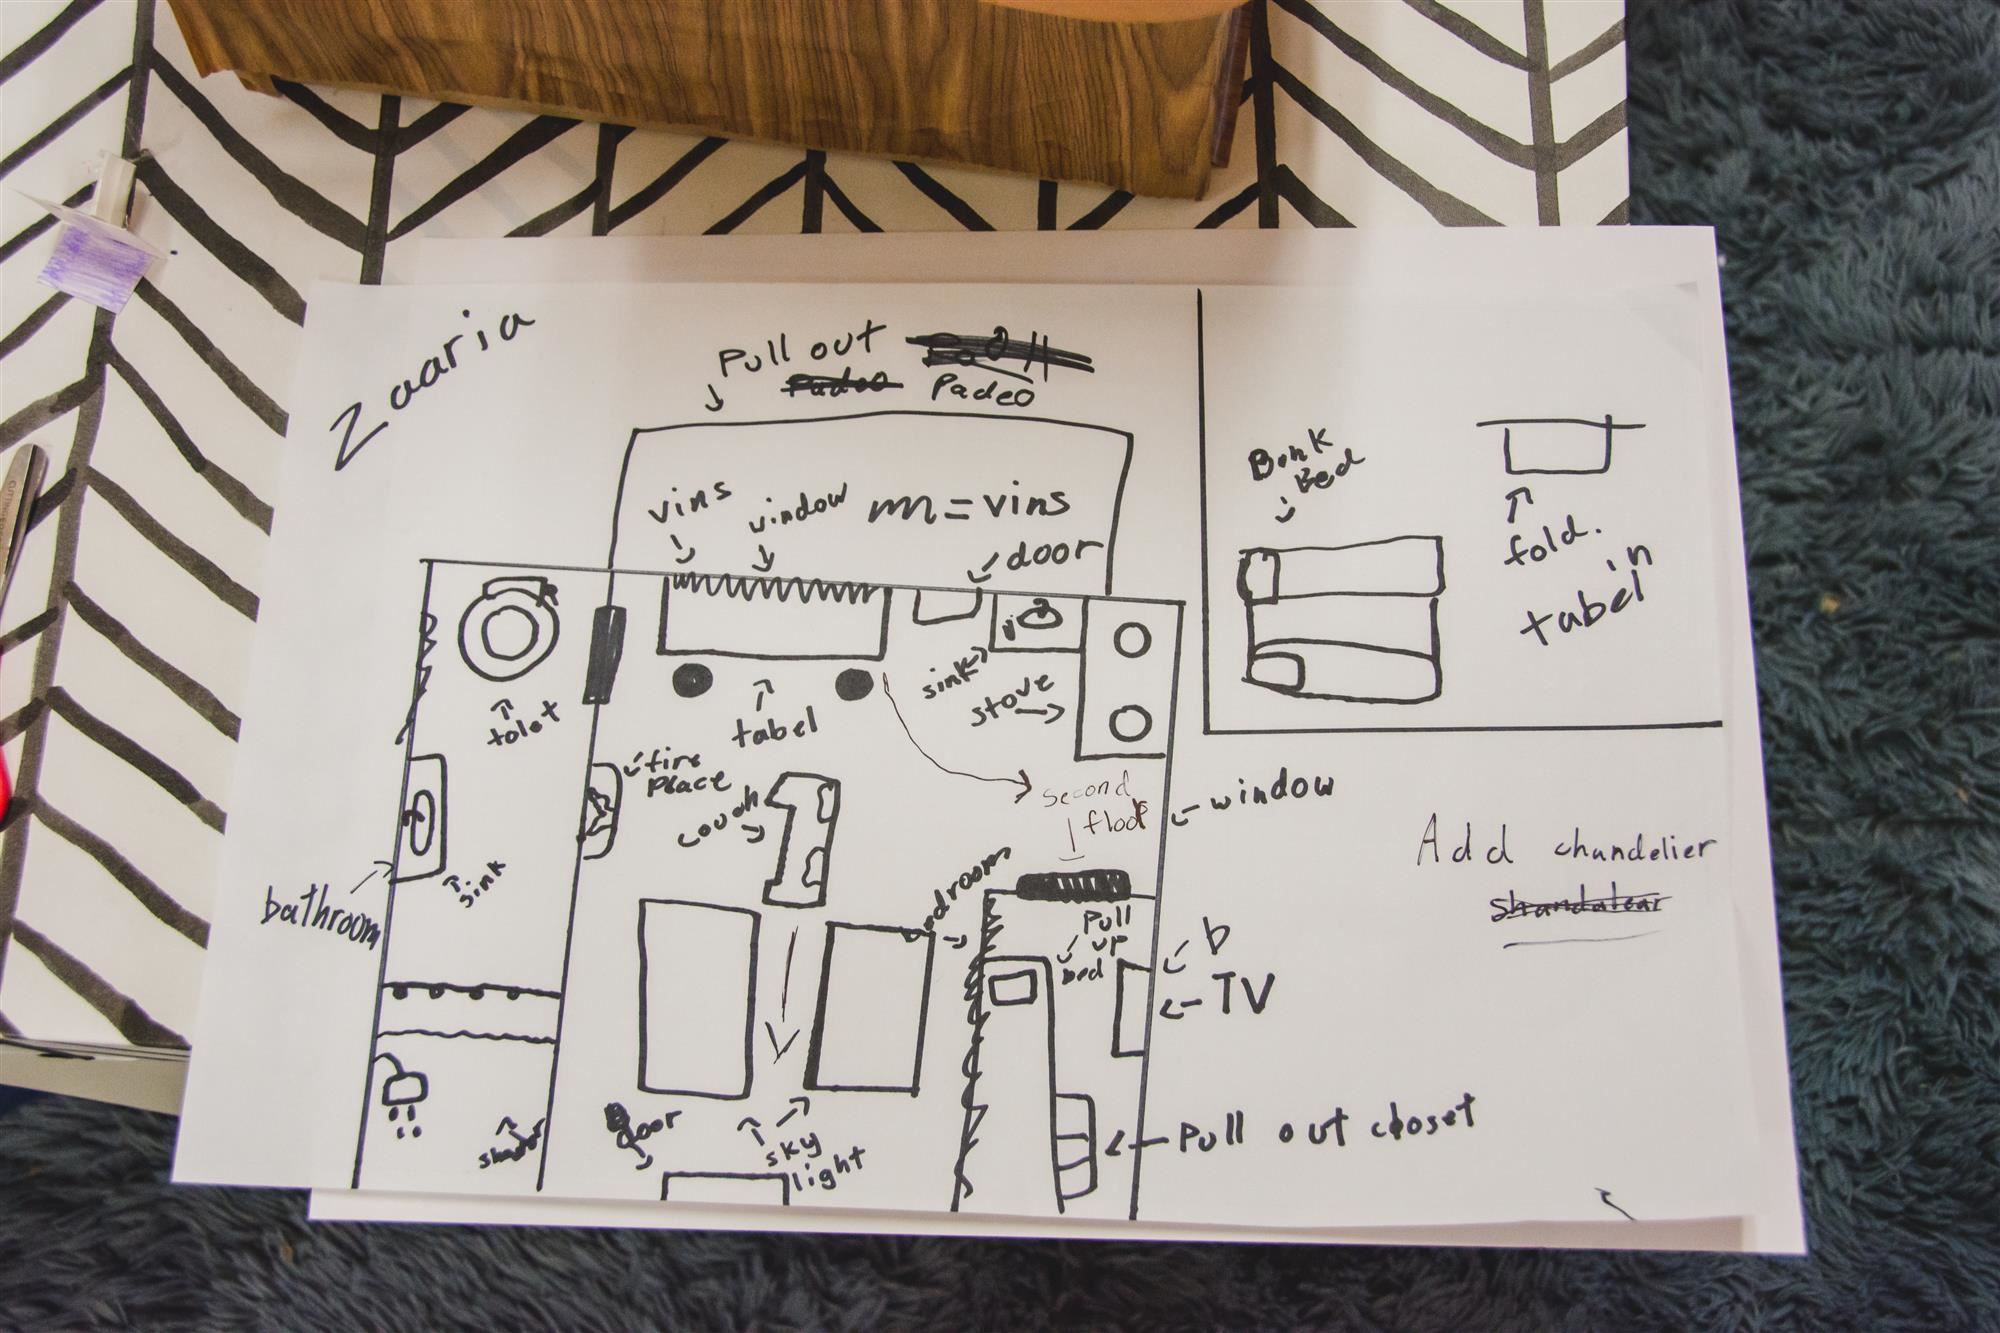 Zaaria
Pull out
Padeo
vins
window
m = vins
door
Bonk
Bed
fold.
in
tabel
tolet
tabel
sink
stove
fire
place
couch
second
floor
window
Add chandelier
shandalear
bathroom
sink
bedroom
Pull
up
bed
b
TV
door
sky
light
Pull out closet